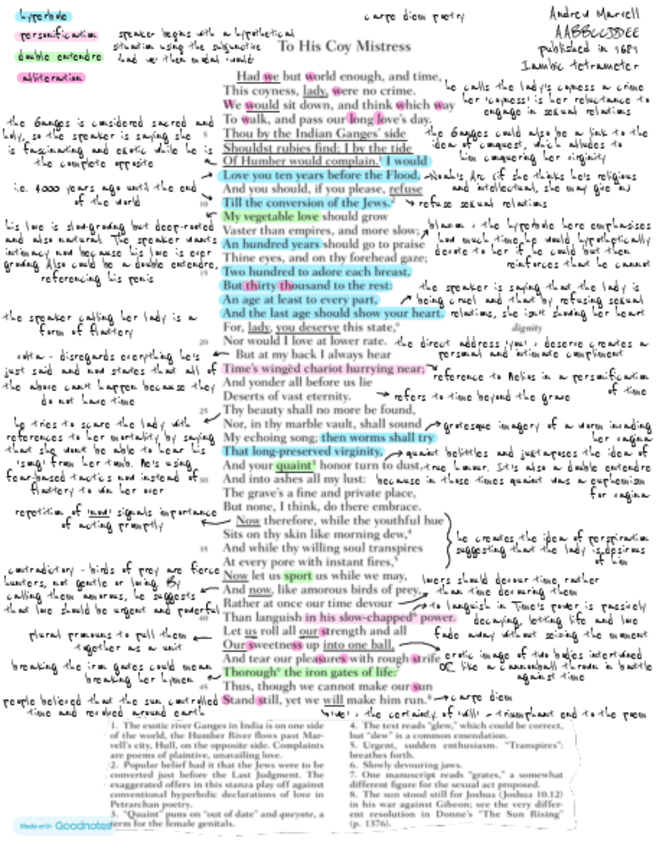 hyperbole
personification
double entendre
alliteration
speaker begins with a hypothetical
situation using the subjunctive
'had we' then modal 'would'
carpe diem poetry
Andrew Marvell
AABBCCDDEE
published in 1681
Iambic tetrameter
To His Coy Mistress
Had we but world enough, and time,
This coyness, lady, were no crime.
We would sit down, and think which way
To walk, and pass our long love's day.
5 Thou by the Indian Ganges' side
Shouldst rubies find; I by the tide
Of Humber would complain.¹ I would
Love you ten years before the Flood,
And you should, if you please, refuse
10 Till the conversion of the Jews.²
My vegetable love should grow
Vaster than empires, and more slow;
An hundred years should go to praise
Thine eyes, and on thy forehead gaze;
15 Two hundred to adore each breast,
But thirty thousand to the rest:
An age at least to every part,
And the last age should show your heart.
For, lady, you deserve this state,° dignity
20 Nor would I love at lower rate.
But at my back I always hear
Time's wingèd chariot hurrying near;
And yonder all before us lie
Deserts of vast eternity.
25 Thy beauty shall no more be found,
Nor, in thy marble vault, shall sound
My echoing song; then worms shall try
That long-preserved virginity,
And your quaint³ honor turn to dust,
30 And into ashes all my lust:
The grave's a fine and private place,
But none, I think, do there embrace.
Now therefore, while the youthful hue
Sits on thy skin like morning dew,⁴
35 And while thy willing soul transpires
At every pore with instant fires,⁵
Now let us sport us while we may,
And now, like amorous birds of prey,
Rather at once our time devour
40 Than languish in his slow-chapped⁶ power.
Let us roll all our strength and all
Our sweetness up into one ball,
And tear our pleasures with rough strife
Thorough° the iron gates of life:⁷
45 Thus, though we cannot make our sun
Stand still, yet we will make him run.⁸
he calls the lady's coyness a crime
her 'coyness' is her reluctance to
engage in sexual relations
the Ganges is considered sacred and
holy, so the speaker is saying she
is fascinating and exotic while he is
the complete opposite
the Ganges could also be a link to the
idea of conquest, which alludes to
him conquering her virginity
Noah's Arc (if she thinks he's religious
and intellectual, she may give in)
i.e. 4000 years ago until the end
of the world
refuse sexual relations
his love is slow-growing but deep-rooted
and also natural. The speaker wants
intimacy now because his love is ever
growing Also could be a double entendre,
referencing his penis
blazon, the hyperbole here emphasises
how much time he would, hypothetically
devote to her if he could but then
reinforces that he cannot
the speaker is saying that the lady is
being cruel and that by refusing sexual
relations, she isn't showing her heart
the speaker calling her lady is a
form of flattery
the direct address 'you', deserve creates a
personal and intimate compliment
volta - disregards everything he's
just said and now states that all of
the above can't happen because they
do not have time
reference to Helios in a personification
of time
refers to time beyond the grave
he tries to scare the lady with
references to her mortality by saying
that she wont be able to hear his
'song' from her tomb. He's using
fear-based tactics now instead of
flattery to win her over
grotesque imagery of a worm invading
her vagina
quaint belittles and juxtaposes the idea of
true honour. It's also a double entendre
because in those times quaint was a euphemism
for vagina
repetition of 'now' signals importance
of acting promptly
he creates the idea of perspiration
suggesting that the lady is desirous
of him
contradictory - birds of prey are fierce
hunters, not gentle or loving. By
calling them amorous, he suggests
that love should be urgent and powerful
lovers should devour time, rather
than time devouring them
to languish in Time's power is passively
decaying, letting life and love
fade away without seizing the moment
plural pronouns to pull them
together as a unit
erotic image of two bodies intertwined
OR like a cannonball thrown in battle
against time
breaking the iron gates could mean
breaking her hymen
people believed that the sun controlled
time and revolved around earth
carpe diem
the certainty of 'will' - triumphant end to the poem
1. The exotic river Ganges in India is on one side
of the world, the Humber River flows past Mar-
vell's city, Hull, on the opposite side. Complaints
are poems of plaintive, unavailing love.
2. Popular belief had it that the Jews were to be
converted just before the Last Judgment. The
exaggerated offers in this stanza play off against
conventional hyperbolic declarations of love in
Petrarchan poetry.
3. "Quaint" puns on "out of date" and queynte, a
term for the female genitals.
4. The text reads "glew," which could be correct,
but "dew" is a common emendation.
5. Urgent, sudden enthusiasm. "Transpires":
breathes forth.
6. Slowly devouring jaws.
7. One manuscript reads "grates," a somewhat
different figure for the sexual act proposed.
8. The sun stood still for Joshua (Joshua 10.12)
in his war against Gibeon; see the very differ-
ent resolution in Donne's "The Sun Rising"
(p. 1376).
Made with Goodnotes